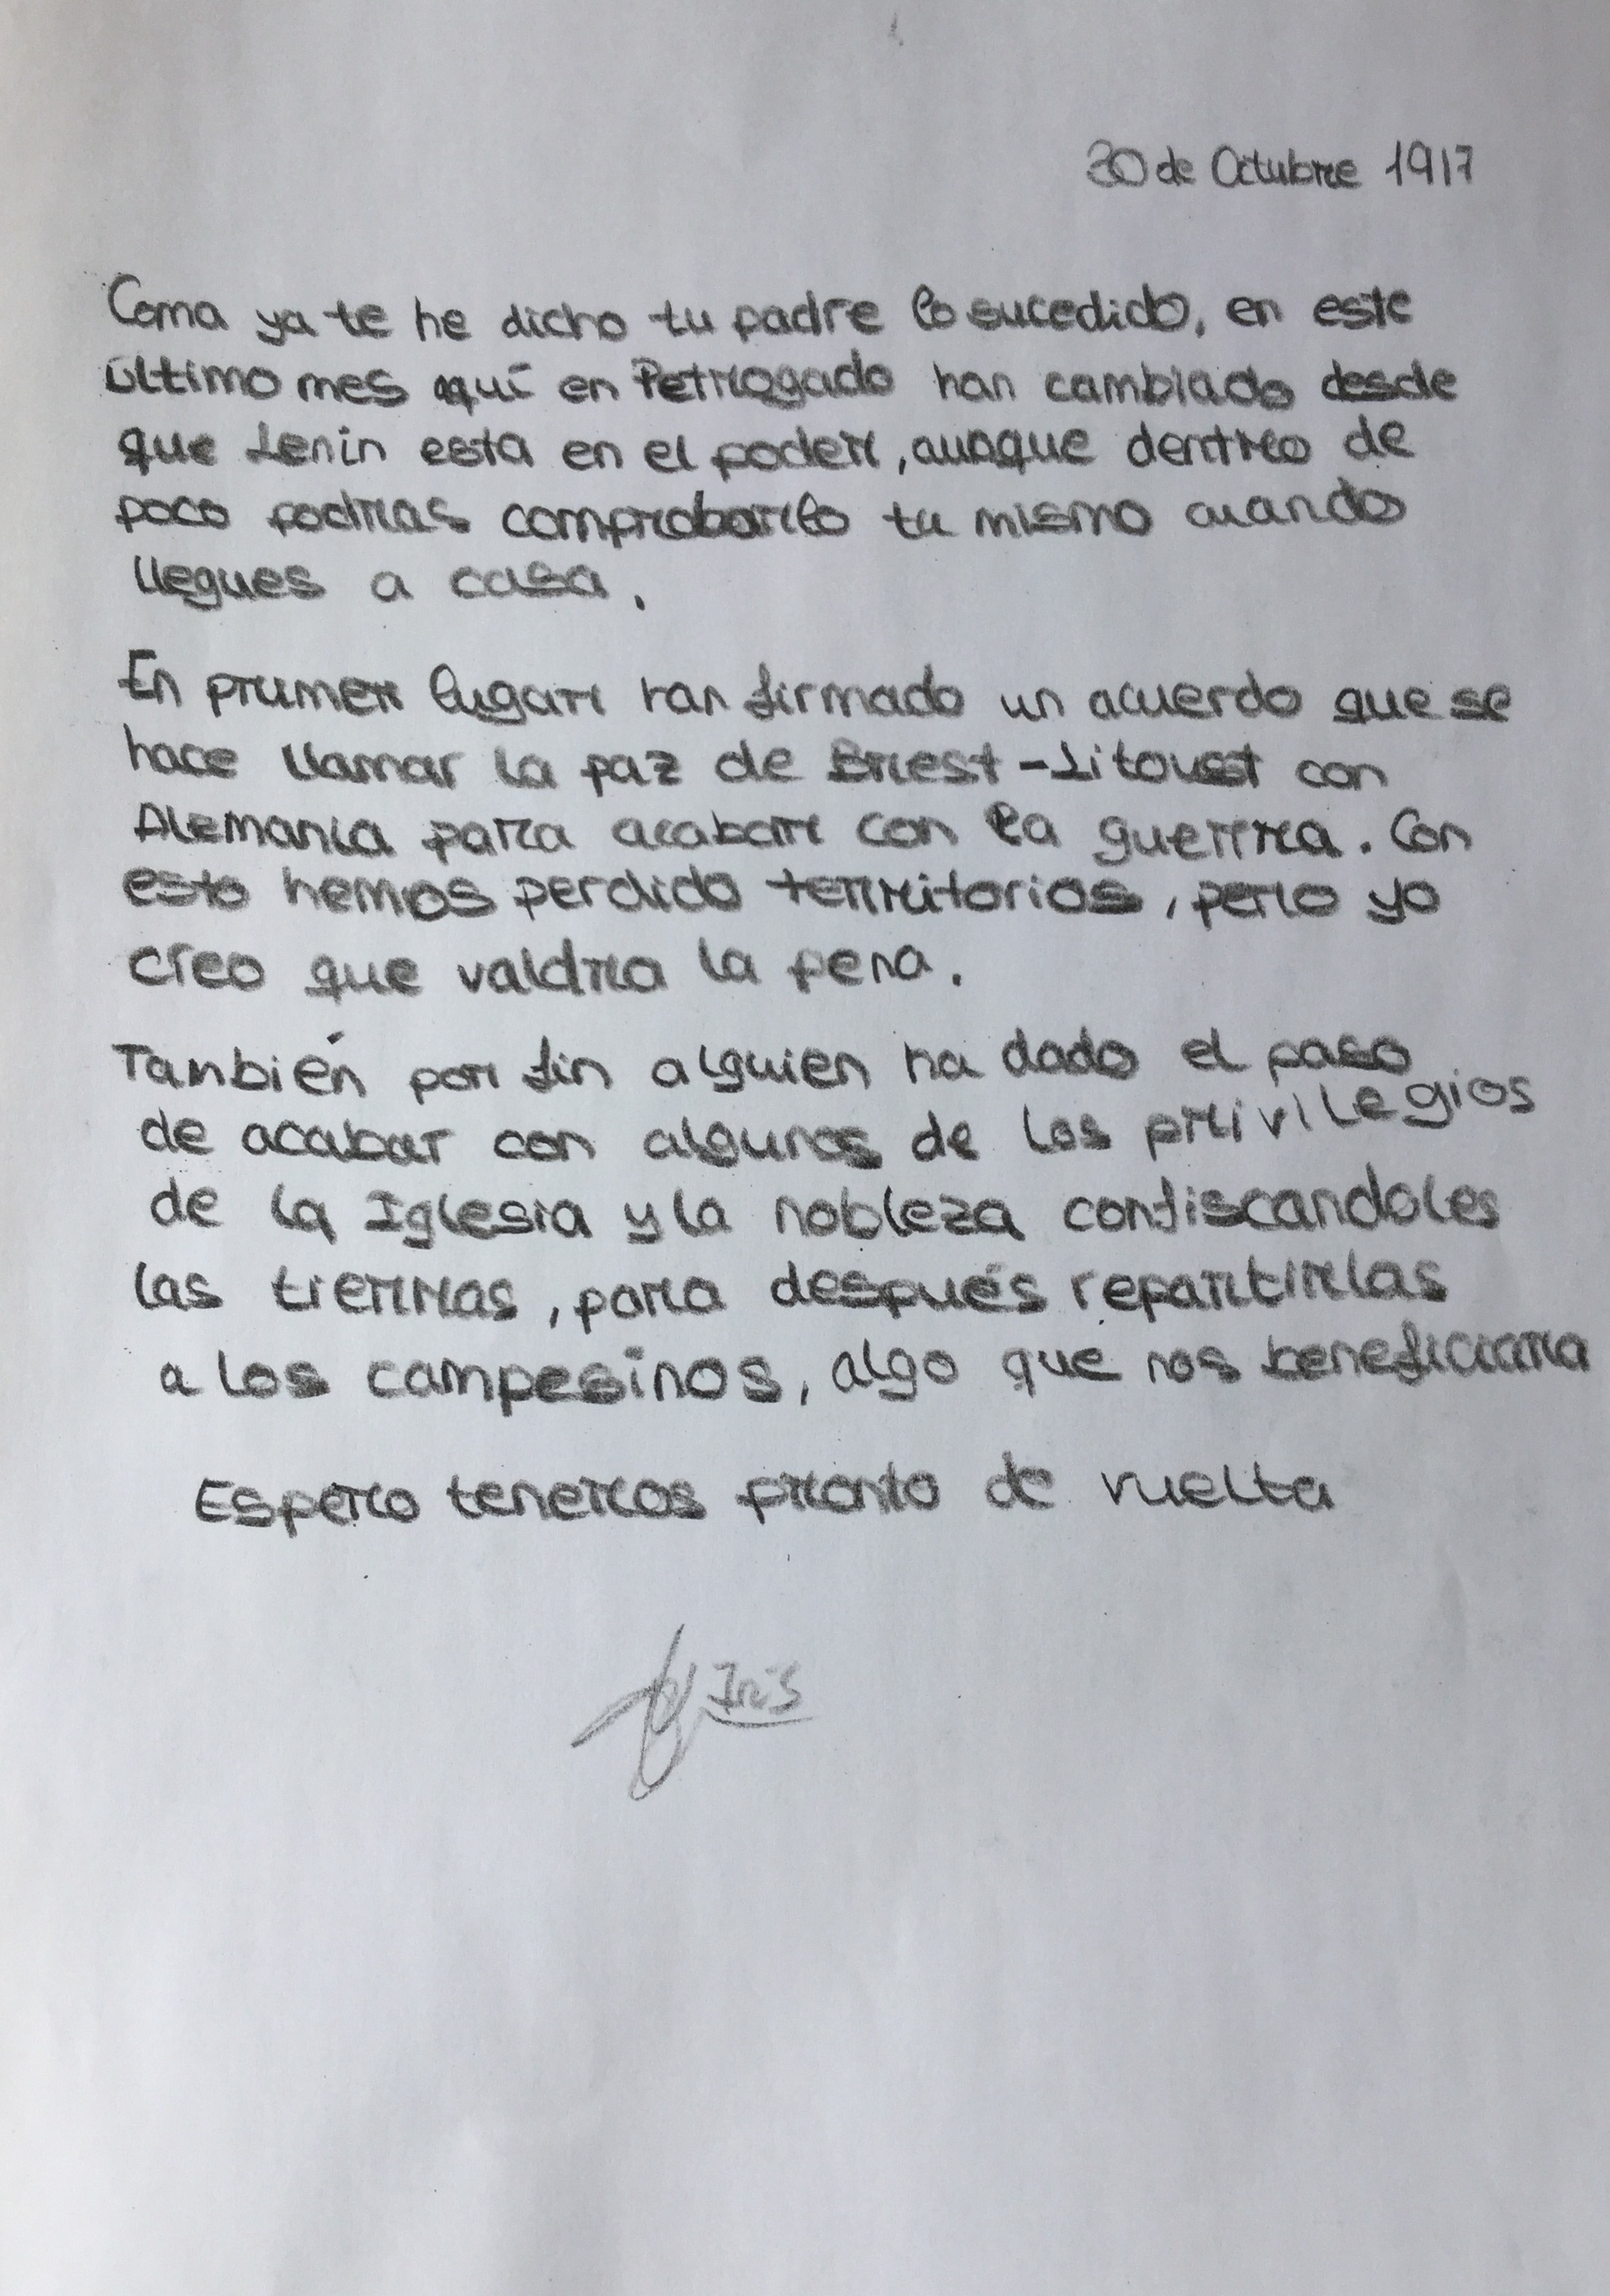 30 de Octubre 1917
Coma ya te he dicho tu padre lo sucedido, en este
último mes aquí en Petrogado han cambiado desde
que Lenin esta en el poder, aunque dentro de
poco podras comprobarlo tu mismo cuando
llegues a casa.
En primer lugar han firmado un acuerdo que se
hace llamar la paz de Brest-Litovst con
Alemania para acabar con la guerra. Con
esto hemos perdido territorios, pero yo
creo que valdra la pena.
También por fin alguien ha dado el paso
de acabar con algunos de los privilegios
de la Iglesia y la nobleza confiscandoles
las tierras, para después repartirlas
a los campesinos, algo que nos beneficiara
Espero teneros pronto de vuelta